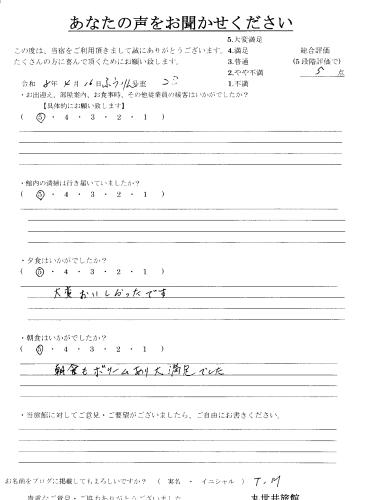 あなたの声をお聞かせください
この度は、当宿をご利用頂きまして誠にありがとうございます。
たくさんの方に喜んで頂くためにお願い致します。
5.大変満足
4.満足
3.普通
2.やや不満
1.不満
総合評価
(5段階評価で)
5 点
令和 8年 4月 16日 ふうりん号室
・お出迎え、部屋案内、お食事時、その他従業員の接客はいかがでしたか?
【具体的にお願い致します】
( ⑤ ・ 4 ・ 3 ・ 2 ・ 1 )
・館内の清掃は行き届いていましたか?
( ⑤ ・ 4 ・ 3 ・ 2 ・ 1 )
・夕食はいかがでしたか?
( ⑤ ・ 4 ・ 3 ・ 2 ・ 1 )
大変おいしかったです
・朝食はいかがでしたか?
( ⑤ ・ 4 ・ 3 ・ 2 ・ 1 )
朝食もボリームあり大満足でした
・当旅館に対してご意見・ご要望がございましたら、ご自由にお書きください。
お名前をブログに掲載してもよろしいですか? ( 実名 ・ イニシャル ) T.M
貴重なご意見・ご協力ありがとうございました
丸世井旅館